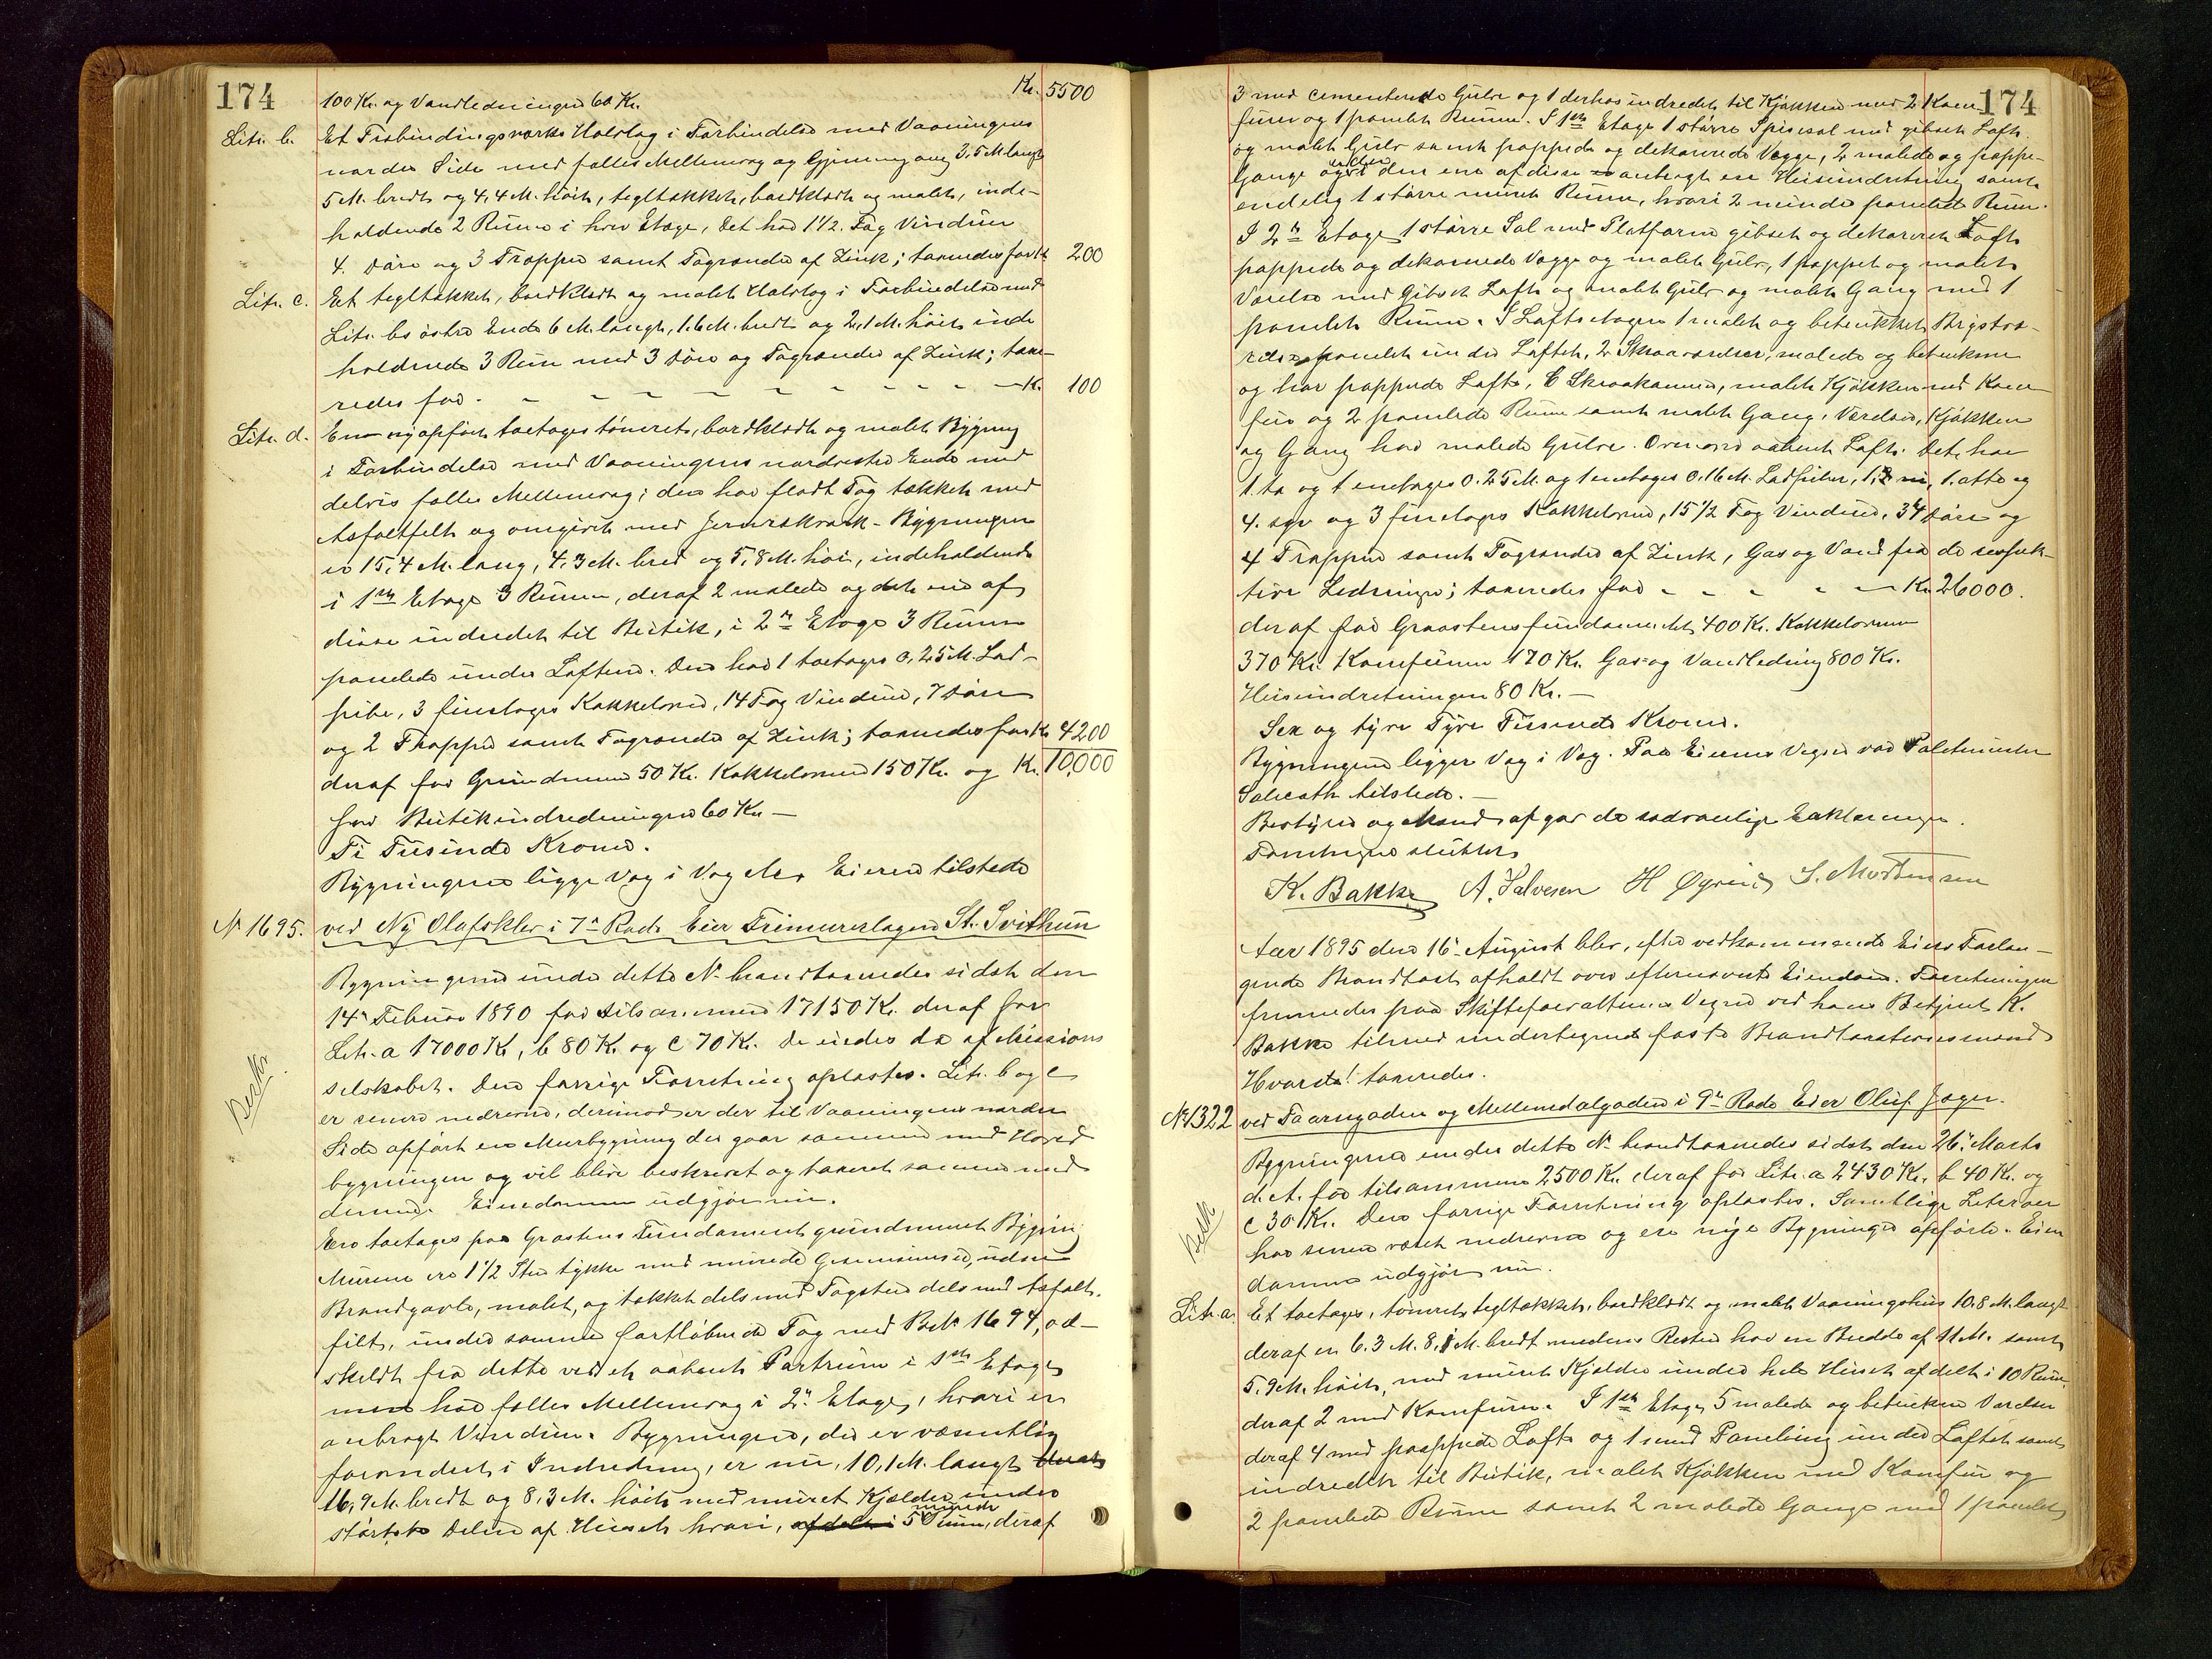 174
100 Kr. og Vandledningen 60 Kr. Kr. 5500
Litr. b. Et Udbindingsværks Halvtag i Forbindelse med Vaaningens
nordre Side med fælles Mellemvæg og Gjennemgang 3,5 M. langt
5 M. bredt og 4,4 M. høit, tegltækket, bordklædt og malet, inde-
holdende 2 Rum i hver Etage, Det har 1 1/2 Fag Vinduer
4 Døre og 3 Trapper samt Tagrender af Zink; taxeredes for Kr. 200
Litr. c. Et tegltækket, bordklædt og malet Halvtag i Forbindelse med
Litr. b's østre Ende 6 M. langt, 1.6 M. bredt og 2,1 M. høit, inde
holdende 3 Rum med 3 Døre og Tagrender af Zink; taxe-
redes for - - - - - - - - - - Kr. 100
Litr. d. En nyopført toetages tømret, bordklædt og malet Bygning
i Forbindelse med Vaaningens nordvestre Ende med
delvis fælles Mellemvæg; den har fladt Tag tækket med
Asfaltfilt og omgivet med Jernrækværk - Bygningen
er 15,4 M. lang, 4,3 M. bred og 5,8 M. høi, indeholdende
i 1ste Etage 3 Rum, deraf 2 malede og det ene af
disse indredet til Butik, i 2n Etage 3 Rum
panelede under Loftene. Den har 1 toetages 0,25 M. Lad-
pibe, 3 fineetages Kakkelovne, 14 Fag Vinduer, 7 Døre
og 2 Trapper samt Tagrender af Zink; taxeredes for Kr. 4200
deraf for Grundmuren 50 Kr. Kakkelovnene 150 Kr. og Kr. 10,000
for Butikindredningen 60 Kr. —
Ti Tusinde Kroner.
Bygningerne ligge Væg i Væg Eieren tilstede
No 1695. ved Ny Olafsklev i 7n Rode Eier Frimurerlogen St. Svithun
Bygningerne under dette No brandtaxeredes sidst den
14n Februar 1890 for tilsammen 17150 Kr. deraf for
Litr. a 17000 Kr, b 80 Kr. og c 70 Kr. De eiedes da af Missions
selskabet. Den forrige Forretning oplæstes. Litr. b og c
Besk.
er senere nedrevne, derimod er der til Vaaningens nordre
Side opført en Murbygning der gaar sammen med Hoved
bygningen og vil blive beskrevet og taxeret sammen med
denne. Eiendommen udgjør nu.
En toetages paa Graastens Fundament grundmuret Bygning
Murene ere 1 1/2 Sten tykke med murede Gesimser, uden
Brandgavle, malet, og tækket dels med Tagsten dels med Asfalt-
filt, under samme fortløbende Tag med B. No 1694, ad-
skildt fra dette ved et aabent Portrum i 1ste Etage
men har fælles Mellemvæg i 2n Etage, hvori er
anbragt Vinduer. Bygningen, der er væsentlig
forandret i Indredning, er nu, 10,1 M. langt
16,9 M. bredt og 8,3 M. høit med muret Kjælder under
største Delen af Huset hvori, 5 murede Rum, deraf
174
3 med cementerede Gulve og 1 derhos indredet til Kjøkken med 2 Kom
furer og 1 panelet Rum. I 1ste Etage 1 større Spisesal med gibset Loft
og malet Gulv samt pappede og dekorerede Vægge, 2 malede og pappe-
Gange og er i den ene af disse anbragt en Heiseindretning samt
endelig 1 større muret Rum, hvori 2 mindre panelede Rum.
I 2n Etage 1 større Sal med Platform gibset og dekoreret Loft
pappede og dekorerede Vægge og malet Gulv, 1 pappet og malet
Værelse med Gibset Loft og malet Gulv og malet Gang med 1
panelet Rum. I Loftsetagen 1 malet og betrukket Kvistvæ-
relse panelet under Loftet, 2 Skraaværelser, malede og betrukne
og har pappede Lofte, 6 Skraakammer, malet Kjøkken med Kom
fur og 2 panelede Rum samt malet Gang. Værelser, Kjøkken
og Gang har malede Gulve. Ovenover aabent Loft. Det har
1 to og 1 enetages 0.25 M. og 1 enetages 0.16 M. Ladpiber, 1 ni, 1 otte og
4 syv og 3 fineetages Kakkelovne, 15 1/2 Fag Vinduer, 34 Døre og
4 Trapper samt Tagrender af Zink, Gas og Vand fra de respek-
tive Ledninger; taxeredes for - - - - - Kr. 26000.
deraf for Graastensfundamentet 400 Kr. Kakkelovnene
370 Kr. Komfurene 170 Kr. Gas og Vandledning 800 Kr.
Heiseindretningen 80 Kr. —
Sex og tyve Tusinde Kroner.
Bygningerne ligger Væg i Væg. Paa Eierens Vegne var Politimester
Salicath tilstede. —
Bestyrer og Mænd afgav de sædvanlige Erklæringer.
Forretningen sluttet
K. Bakke A. Salvesen H Øgreid S. Mortensen
Aar 1895 den 16n August blev, efter vedkommende Eiers Forlan-
gende Brandtaxt afholdt over efternævnte Eiendom. Forretningen
fremmedes paa Skifteforvalterens Vegne ved hans Betjent K.
Bakke tilmed undertegnede faste Brandtaxationsmænd
Hvorda! taxeredes.
No 1322 ved Taarngaden og Mellemdalgaden i 9n Rode Eier Oluf Jæger.
Bygningerne under dette No brandtaxeredes sidst den 26n Marts
d. A. for tilsammen 2500 Kr. deraf for Litr. a 2430 Kr. b 40 Kr. og
c 30 Kr. Den forrige Forretning oplæstes. Samtlige Litraer
Besk
har senere været nedrevne og ere nye Bygninger opførte. Eien
dommen udgjør nu.
Litr. a. Et toetages, tømret, tegltækket, bordklædt og malet Vaaningshus 10.8 M. langt
deraf er 6.3 M. 8.1 M. bredt medens Resten har en Bredde af 11 M. samt
5.9 M. høit, med muret Kjælder under hele Huset afdelt i 10 Rum,
deraf 2 med Komfurer. I 1ste Etage, 5 malede og betrukne Værelser
deraf 4 med pappede Lofte og 1 med Paneling under Loftet samt
indredet til Butik, malet Kjøkken med Komfur og
2 panelede Rum samt 2 malede Gange med 1 panelet